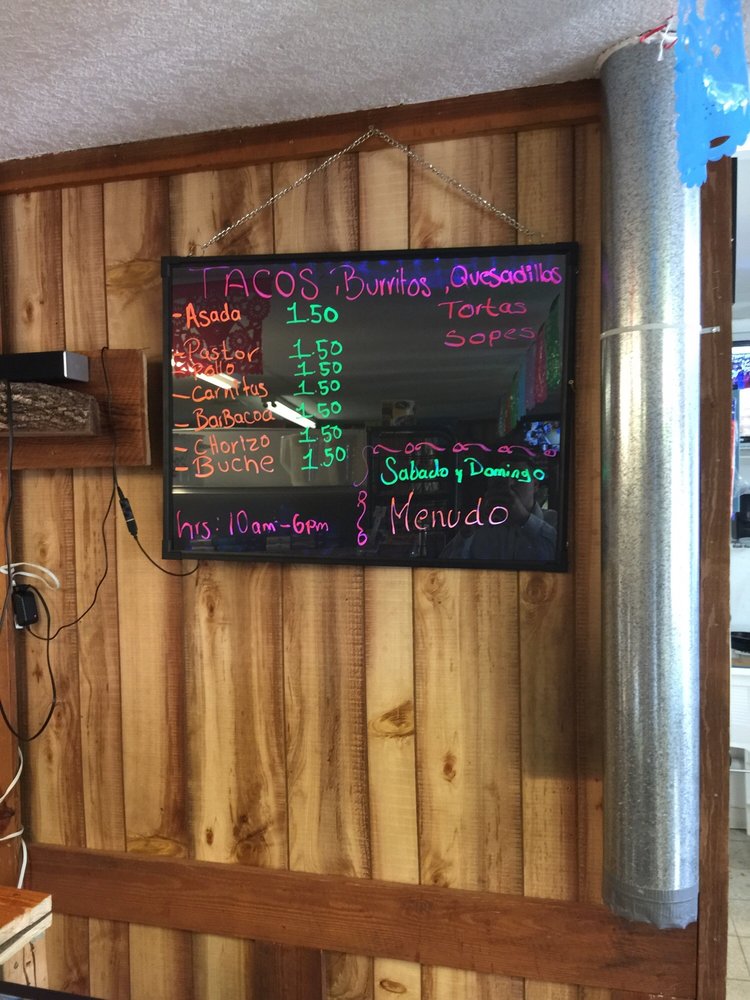 TACOS, Burritos, Quesadillas
Tortas
Sopes
- Asada 1.50
- Pastor 1.50
- Pollo 1.50
- Carnitas 1.50
- BarBacoa 1.50
- CHorizo 1.50
- Buche 1.50
hrs: 10am-6pm
Sabado y Domingo
Menudo